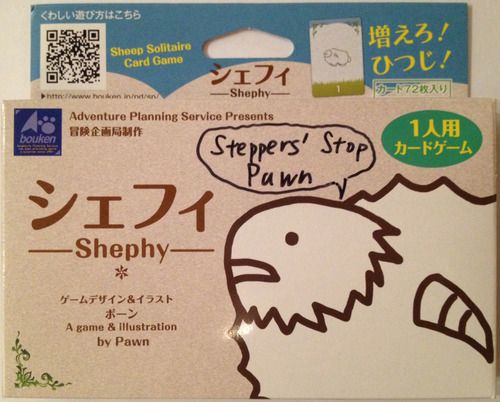 くわしい遊び方はこちら
Sheep Solitaire
Card Game
シェフィ
—Shephy—
1
増えろ!
ひつじ!
カード72枚入り
bouken
Adventure Planning Service Presents
冒険企画局制作
Steppers' Stop
Pawn
1人用
カードゲーム
シェフィ
—Shephy—
ゲームデザイン&イラスト
ポーン
A game & illustration
by Pawn